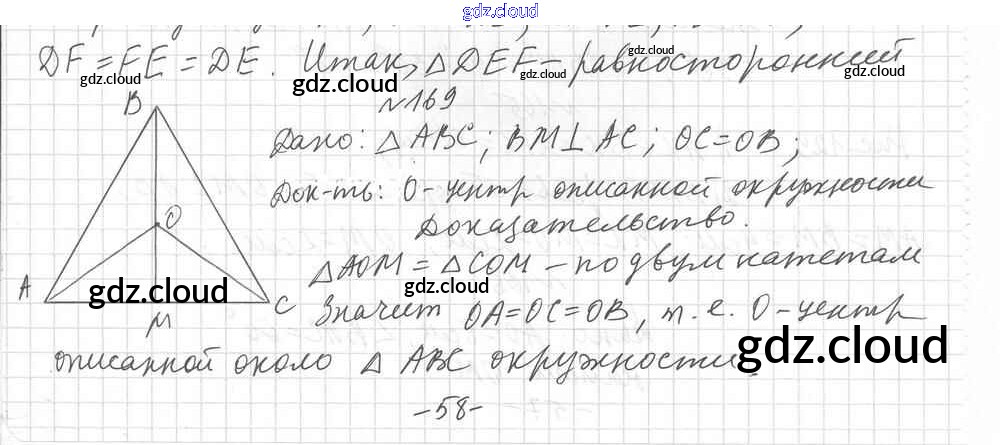 gdz.cloud
DF = FE = DE. Итак, △ DEF – равносторонний
gdz.cloud gdz.cloud gdz.cloud gdz.cloud
gdz.cloud
№169
B
Дано: △ ABC; BM⊥ AC; OC=OB;
Док-ть: O - центр описанной окружности
O
Доказательство.
△ AOM = △ COM – по двум катетам
A
gdz.cloud gdz.cloud
C
M
Значит OA=OC=OB, т. е. O - центр
описанной около △ ABC окружности.
gdz.cloud
-58-